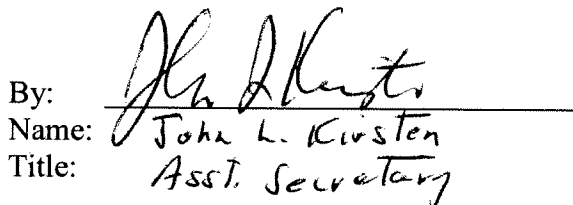 By: John L Kirsten
Name: John L. Kirsten
Title: Asst. Secretary